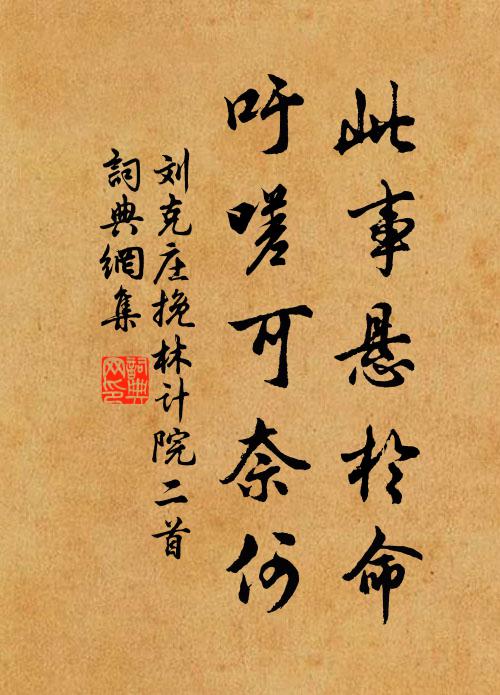 此事悬於命
吁嗟可奈何
刘克庄挽林计院二首
詞典網集
詞典
网印